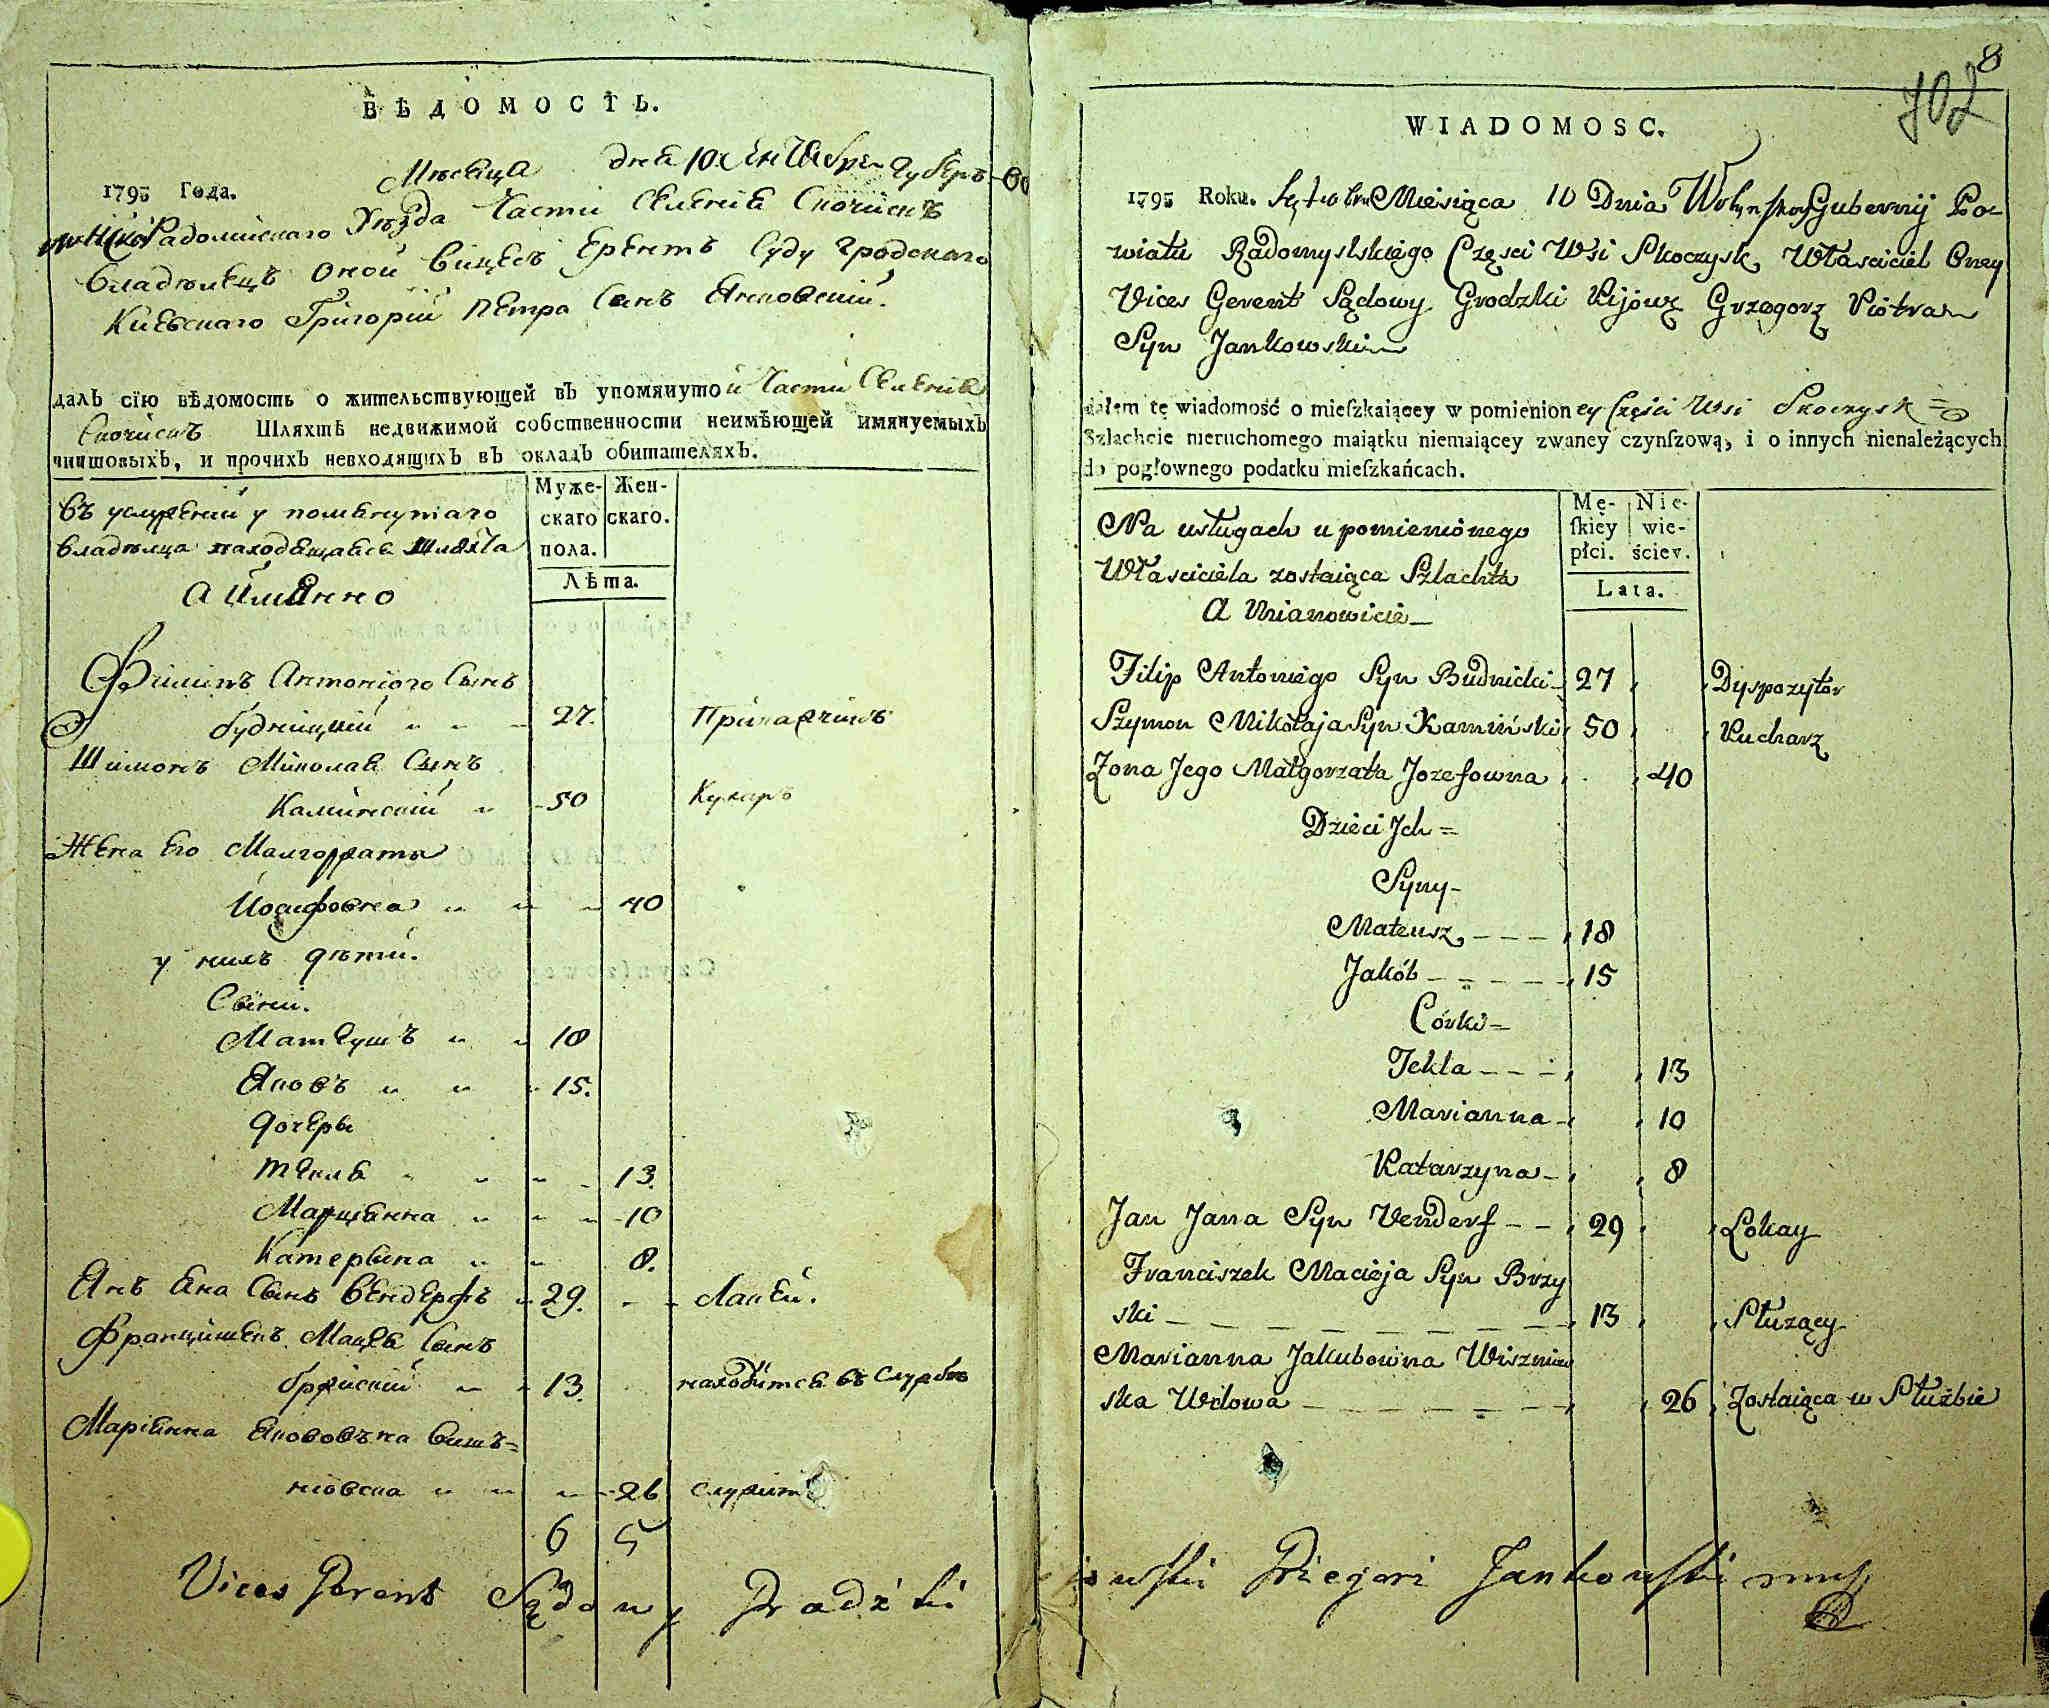 ВѢДОМОСТЬ.
1795 Года. Мѣсяца дня 10 Сентября Губер-
Радомисскаго Уѣзда Части Селения Скочискъ
Владѣлецъ оной Вицесъ Ерентъ Суду Гродскаго
Киевскаго Григорій Петра Сынъ Янковскій.
далъ сїю вѣдомость о жительствующей въ упомянутой Части Селения
Скочискъ Шляхтѣ недвижимой собственности неимѣющей имянуемыхъ
чиншовыхъ, и прочихъ невходящихъ въ окладъ обитателяхъ.
Муже-скаго пола. Жен-скаго.
Лѣта.
въ услужении у помянутаго
владѣлца находящаяся Шляхта
а Имянно
Филипъ Антоніого Сынъ
будницкій 27. Приказчикъ
Шимонъ Миколая Сынъ
Каминскій 50 Кухаръ
Жена Его Малгоржата
Иозифовна 40
у нихъ дѣти.
Сыни.
Матеушъ 18
Яковъ 15.
Дочеры
Текля 13.
Марцянна 10
Катерына 8.
Янъ Яна Сынъ Вендерфъ 29. Лакей.
Францишекъ Мацея Сынъ
бржискій 13. находится въ службѣ
Маріянна Якововъна Вишъ=
нювска 26 служитъ
6 5
Vices Gerent Sądowy Grodzki
8
702
WIADOMOSC.
1795 Roku. Septembra Miesiąca 10 Dnia Wołynskoy Gubernij Po-
wiatu Radomyslskiego Części Wsi Skoczysk Własciciel Oney
Vices Gerent Sądowy Grodzki Kijowz Grzegorz Piotra
Syn Jankowski
dałem tę wiadomość o mieſzkaiącey w pomienioney Części Wsi Skoczysk
Szlachcie nieruchomego maiątku niemaiącey zwaney czynſzową, i o innych nienależących
do pogłownego podatku mieſzkańcach.
Mę-ſkiey płci. Nie-wie-ściey.
Lata.
Na usługach u pomienionego
Własciciela zostaiąca Szlachta
A Mianowicie
Filip Antoniego Syn Budnicki 27 Dyspozytor
Szymon Mikołaja Syn Kamiński 50 Kucharz
Zona Jego Małgorzata Jozefowna 40
Dzieci Jch =
Syny-
Mateusz 18
Jakób 15
Córki=
Tekla 13
Marianna 10
Katarzyna 8
Jan Jana Syn Venderf 29 Lokay
Franciszek Macieja Syn Brzy
ski 13 Służący
Marianna Jakubowna Wiszniow
ska Wdowa 26 Zostaiąca w Służbie
Jankowski